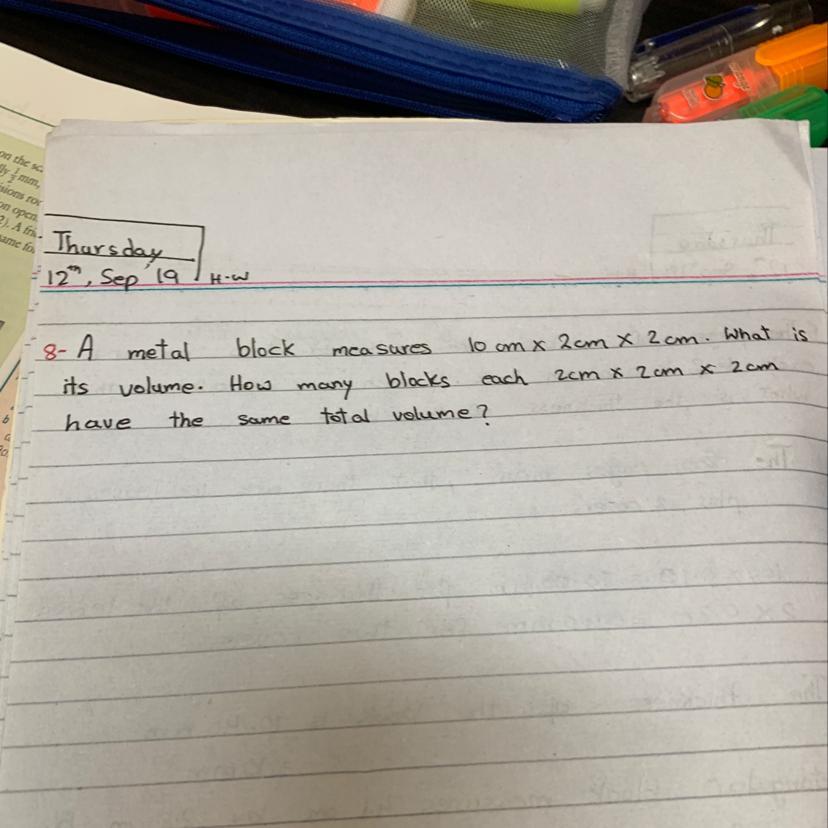 on the sc
lly ½ mm,
sions ro
on open
2). A fri
ame fo
Thursday
12th, Sep '19 H-W
8- A metal block measures 10 cm x 2cm x 2 cm. What is
its volume. How many blocks each 2cm x 2cm x 2cm
have the same total volume?